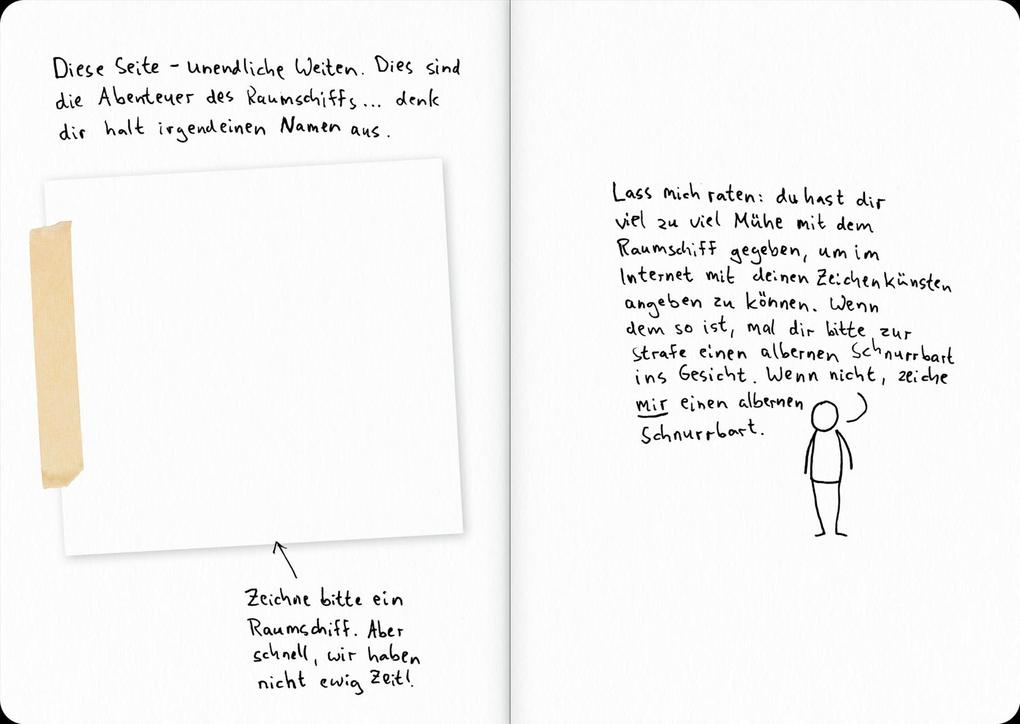 Diese Seite - unendliche Weiten. Dies sind
die Abenteuer des Raumschiffs... denk
dir halt irgendeinen Namen aus.
Zeichne bitte ein
Raumschiff. Aber
schnell, wir haben
nicht ewig Zeit!
Lass mich raten: du hast dir
viel zu viel Mühe mit dem
Raumschiff gegeben, um im
Internet mit deinen Zeichenkünsten
angeben zu können. Wenn
dem so ist, mal dir bitte zur
Strafe einen albernen Schnurrbart
ins Gesicht. Wenn nicht, zeiche
mir einen albernen
Schnurrbart.